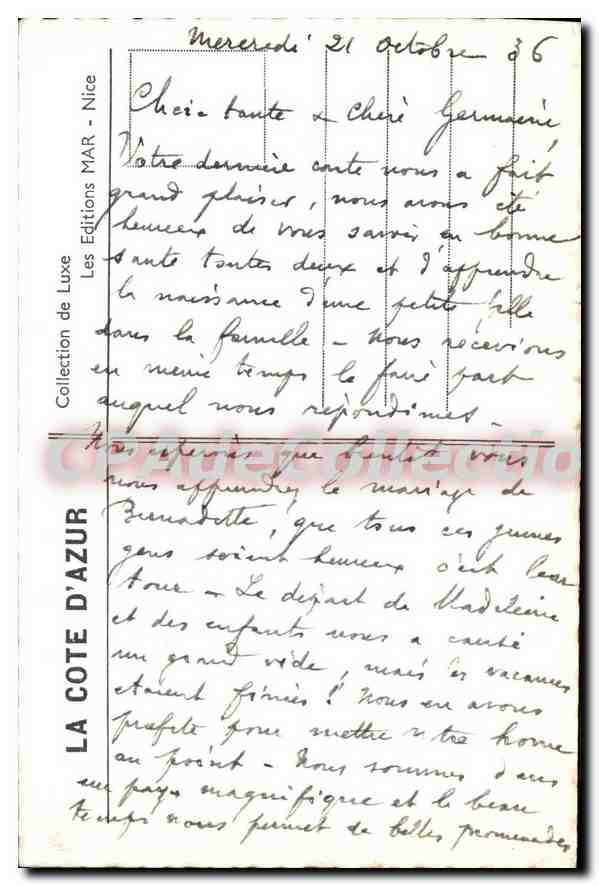 Mercredi 21 octobre 36
Chère tante & chère Germaine,
Votre dernière carte nous a fait
grand plaisir, nous avons été
heureux de vous savoir en bonne
santé toutes deux et d'apprendre
la naissance d'une petite fille
dans la famille - nous recevions
en même temps le faire part
auquel nous répondîmes -
Nous espérons que bientôt vous
nous apprendrez le mariage de
Bernadette, que tous ces jeunes
gens soient heureux c'est leur
tour - Le départ de Madeleine
et des enfants nous a causé
un grand vide, mais les vacances
étaient finies! Nous en avons
profité pour mettre notre home
au point - Nous sommes dans
un pays magnifique et le beau
temps nous permet de belles promenades
Collection de Luxe
Les Editions MAR - Nice
LA COTE D'AZUR
CPAdeCollection